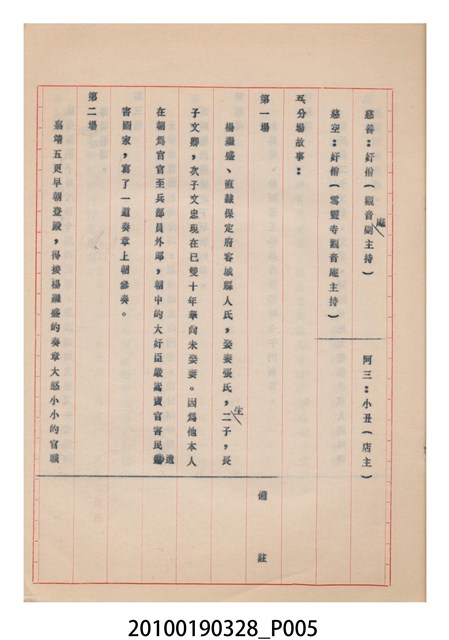 慈善：奸僧（觀音庵主持） 阿三：小丑（店主）
慈空：奸僧（雲靈寺觀音庵主持）
五、分場故事：
第一場
楊繼盛、直隸保定府容城縣人氏，娶妻張氏，生二子，長
子文卿，次子文忠現在已雙十年華尚未娶妻。因爲他本人
在朝爲官官至兵部員外郎，朝中的大奸臣嚴嵩賣官害民
害國家，寫了一道奏章上朝參奏。
第二場
嘉靖五更早朝登殿，得接楊繼盛的奏章大感小小的官職
備註
20100190328_P005